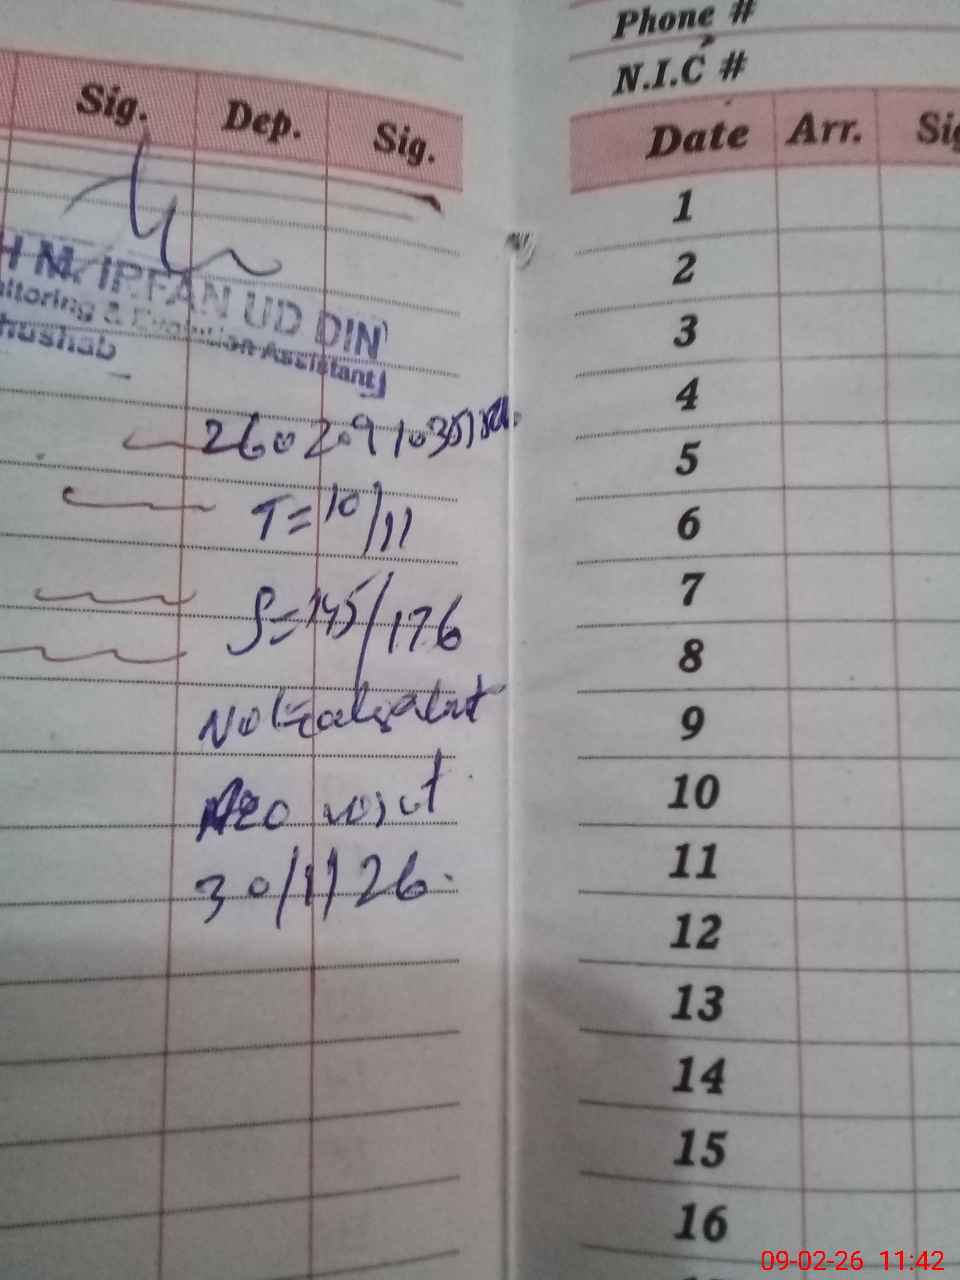 Sig. Dep. Sig.
H M. IRFAN UD DIN
nitoring & Evalution Assistant
hushab
T=10/11
S=145/176
AEO visit
30/1/26.
Phone #
N.I.C #
Date Arr. Sig
1
2
3
4
5
6
7
8
9
10
11
12
13
14
15
16
09-02-26 11:42